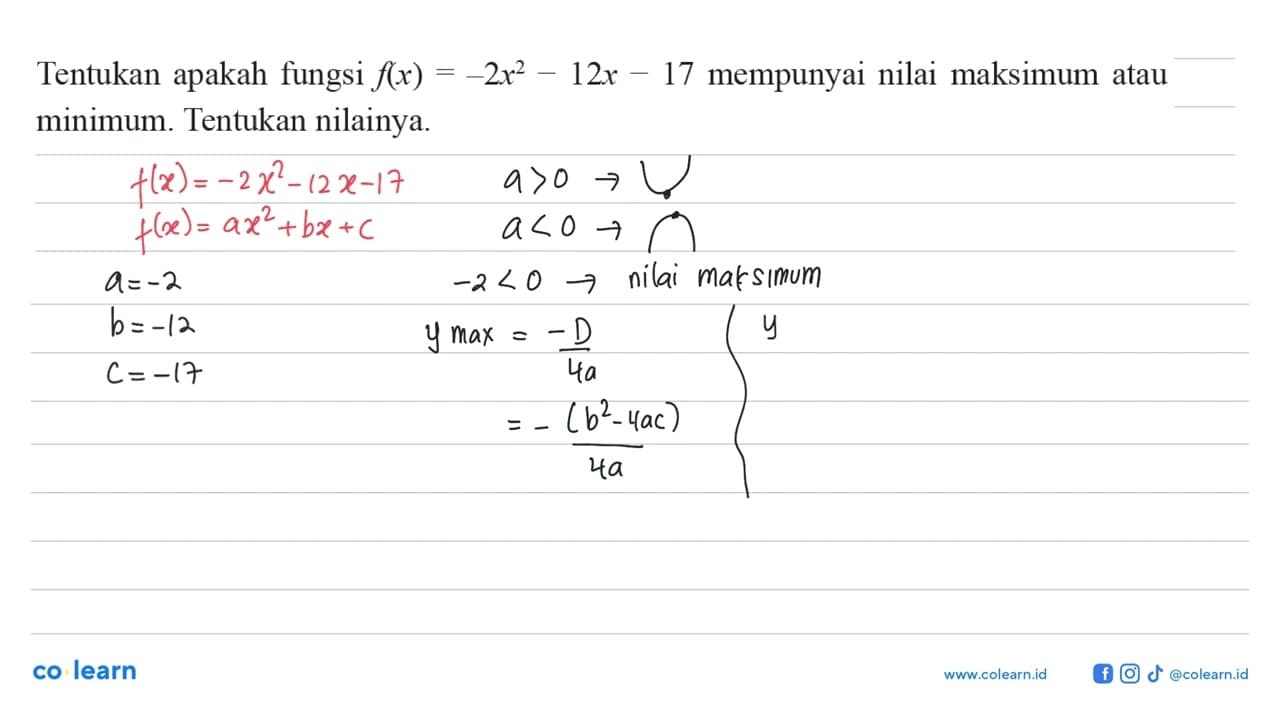 Tentukan apakah fungsi f(x) = –2x² − 12x − 17 mempunyai nilai maksimum atau
minimum. Tentukan nilainya.
f(x) = -2x² - 12x - 17
f(x) = ax² + bx + c
a > 0 →
a < 0 →
a = -2
b = -12
c = -17
-2 < 0 → nilai maksimum
y max = -D/4a
= -(b² - 4ac)/4a
y
co learn
www.colearn.id
@colearn.id